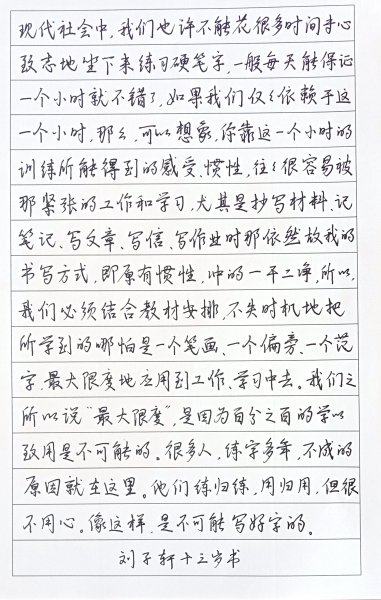 现代社会中，我们也许不能花很多时间专心
致志地坐下来练习硬笔字，一般每天能保证
一个小时就不错了，如果我们仅仅依赖于这
一个小时，那么，可以想象，你靠这一个小时的
训练所能得到的感受、惯性，往往很容易被
那紧张的工作和学习，尤其是抄写材料、记
笔记、写文章、写信、写作业时那依然故我的
书写方式，即原有惯性，冲的一干二净，所以，
我们必须结合教材安排，不失时机地把
所学到的哪怕是一个笔画、一个偏旁、一个范
字，最大限度地应用到工作、学习中去。我们之
所以说“最大限度”，是因为百分之百的学以
致用是不可能的。很多人，练字多年，不成的
原因就在这里。他们练归练，用归用，但很
不用心。像这样，是不可能写好字的。
刘子轩十三岁书